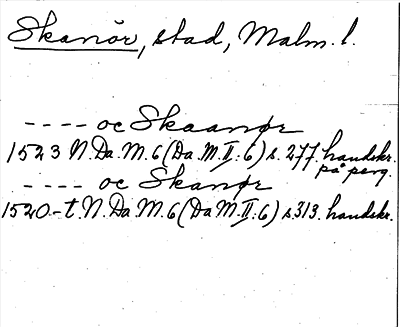 Skanör, stad, Malm. l.
---- oc Skaanør
1523 N. Da. M. 6 (Da. M. II: 6) s. 277. handskr.
på perg.
---- oc Skanør
1520-t. N. Da. M. 6 (Da M. II: 6) s 313. handskr.